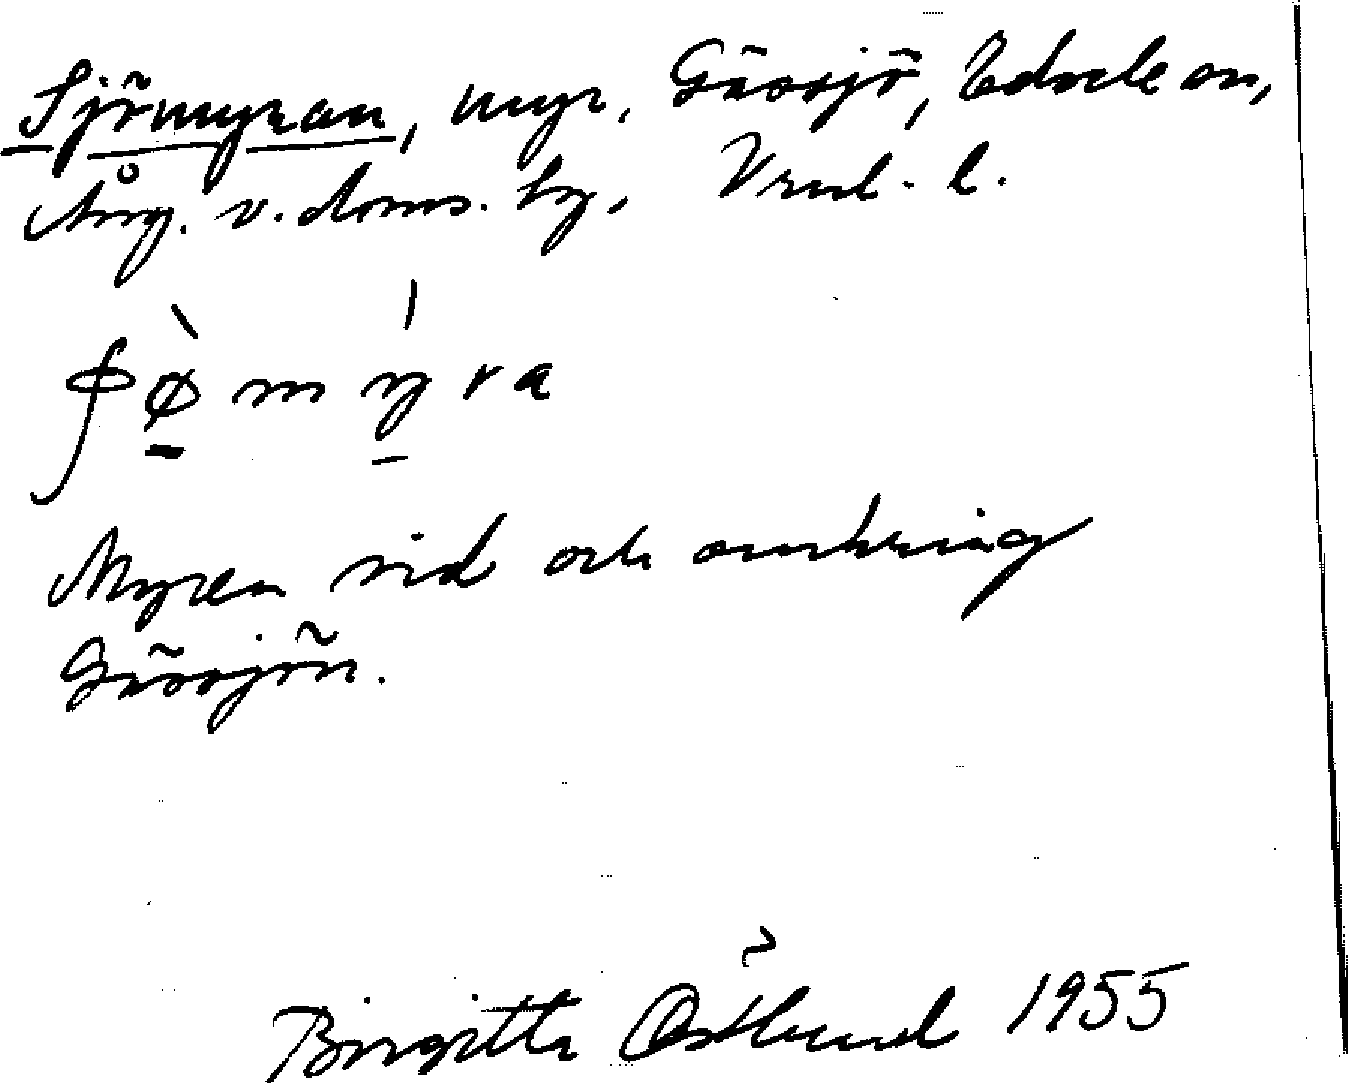 Sjömyran, myr, Gässjö, Edsele sn,
Ång. v. doms. by, Vrnl. l.
ʃø̀mýra
Myren vid och omkring
Gässjön.
Birgitta Östlund 1955